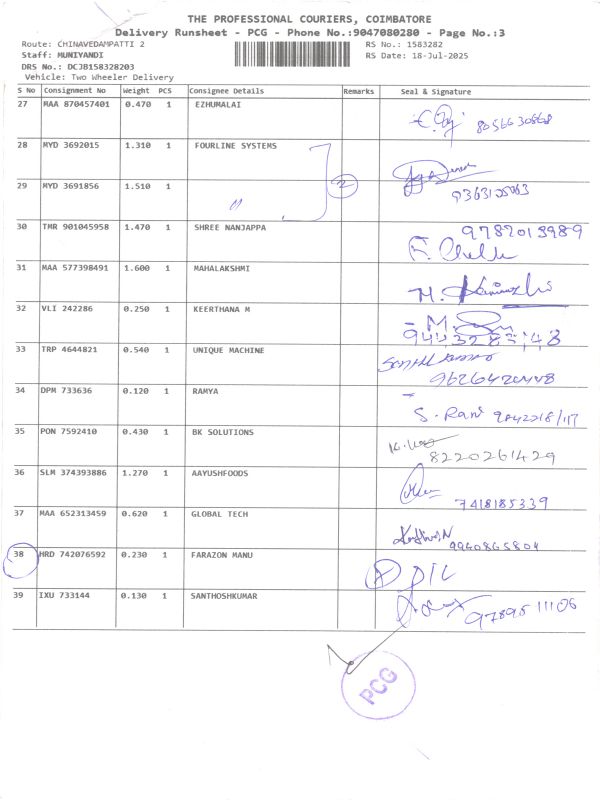 THE PROFESSIONAL COURIERS, COIMBATORE
Delivery Runsheet - PCG - Phone No.:9047080280 - Page No.:3
Route: CHINAVEDAMPATTI 2 RS No.: 1583282
Staff: MUNIYANDI RS Date: 18-Jul-2025
DRS No.: DCJB158328203
Vehicle: Two Wheeler Delivery
S No Consignment No Weight PCS Consignee Details Remarks Seal & Signature
27 MAA 870457401 0.470 1 EZHUMALAI
28 MYD 3692015 1.310 1 FOURLINE SYSTEMS
29 MYD 3691856 1.510 1 " 2
30 TMR 901045958 1.470 1 SHREE NANJAPPA 9787013989
31 MAA 577398491 1.600 1 MAHALAKSHMI
32 VLI 242286 0.250 1 KEERTHANA M
33 TRP 4644821 0.540 1 UNIQUE MACHINE 9626420448
34 DPM 733636 0.120 1 RAMYA S. Rani
35 PON 7592410 0.430 1 BK SOLUTIONS 8220261429
36 SLM 374393886 1.270 1 AAYUSHFOODS 7418185339
37 MAA 652313459 0.620 1 GLOBAL TECH 9940865804
38 HRD 742076592 0.230 1 FARAZON MANU
39 IXU 733144 0.130 1 SANTHOSHKUMAR 9789511106
PCG